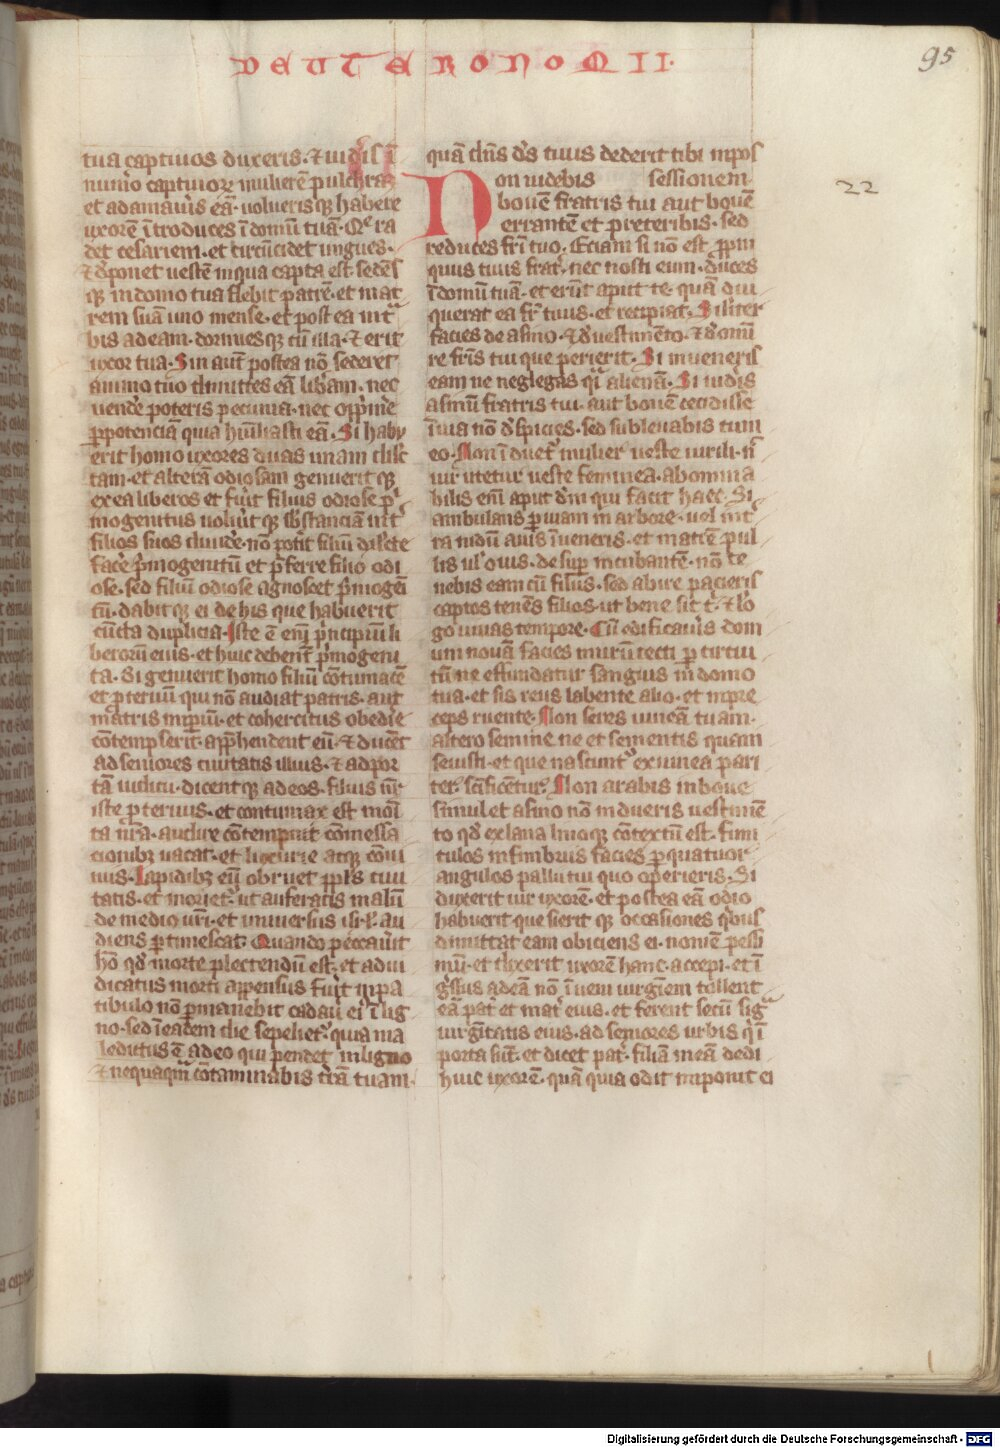 DEUTERONOMII.
95
tua captiuos duxeris. ⁊ uid̾is ī
num̾o captiuoꝝ muliere̅ pulchraꝫ
et adamau̾is ea̅. uolueris qꝫ habere
uxore̅ i̅troduces i̅ domu̅ tua̅. Q̾ ra
det cesariem. et circu̅cidet ungues.
⁊ dp̅onet ueste̅ in qua capta est. sede̅s
qꝫ in domo tua flebit patre̅. et mat
rem sua̅ uno mense. et post ea int̾
bis ad eam. dormies qꝫ cu̅ illa. ⁊ erit
uxor tua. Sin aut̅ postea no̅ sederet
animo tuo dimittes ea̅ lib̾am. nec
uend̾e poteris pecunia. nec opp̾im̾e
ꝑ potencia̅ quia hu̅iliasti ea̅. Si habu
erit homo uxores duas unam dilec
tam. et altera̅ odiosam genuerit qꝫ
ex ea liberos et fu̾it filius odiose p̾
mogenitus uolu̾it qꝫ sb̅stancia̅ int̾
filios suos diuid̾e. no̅ pot̾it filiu̅ dil̾cte
fac̾e p̾mogenitu̅ et p̾ferre filio odi
ose. sed filiu̅ odiose agnoscet p̾mogeni
tu̅. dabit qꝫ ei de his que habuerit
cu̅cta duplicia. Iste e̅ eni̅ p̾ncipiu̅ li
beroru̅ eius. et huic debent̾ p̾mogeni
ta. Si genuerit homo filiu̅ co̅tumace̅
et ꝑteruu̅ qui no̅ audiat patris. aut
matris imꝑiu̅. et cohercitus obedi̾e
co̅tempserit. app̾hendent eu̅. ⁊ duce̅t
ad seniores ciuitatis illius. ⁊ ad por
ta̅ iudicii. dicent qꝫ ad eos. filius nr̅
iste ꝑteruus. et contumax est moi̅
ta nr̅a. audire co̅tempnit co̅messa
cionibꝫ uacat. et luxurie atqꝫ co̅ui
uiis. Lapidibꝫ eu̅ obruet ppl̅s ciui
tatis. et moriet̾. ut auferatis malu̅
de medio ur̅i. et uniuersus isr̅l. au
diens ꝑtimescat. Quando peccau̾it
ho̅ qd̾ morte plectendu̅ est. et adiu
dicatus morti appensus fu̾it in pa
tibulo no̅ ꝑmanebit cadau̾ ei̾ i̅ lig
no. sed i̅ eadem die sepeliet̾. quia ma
ledictus e̅ a deo qui pendet in ligno
⁊ nequaqm̅ co̅taminabis t̾ra̅ tuam.
qua̅ dn̅s d̅s tuus dederit tibi in pos
sessionem.
22
Non uidebis
boue̅ fratris tui aut boue̅
errante̅ et p̾teribis. sed
reduces fr̅i tuo. Eciam si no̅ est ꝓpin
quus tuus frat̾. nec nosti eum. duces
i̅ domu̅ tua̅. et eru̅t aput te. qua̅ diu
querat ea fr̅ tuus. et recipiat. Simil̾iter
facies de asino. ⁊ d̾ uestime̅to. ⁊ d̾ omi̅
re fr̅is tui que perierit. Si inueneris
eam ne neglegas qi̾ aliena̅. Si uid̾is
asinu̅ fratris tui. aut boue̅ cecidisse
i̅ uia no̅ d̾spicies. sed subleuabis cum
eo. Non i̅duet̾ mulier ueste uirili. n̅
uir utetur ueste feminea. abomina
bilis eni̅ aput d̅m qui facit haec. Si
ambulans ꝑ uiam in arbore. uel int̾
ra nidu̅ auis i̅ueneris. et matre̅ pul
lis ul̾ ouis. desuꝑ incubante̅. no̅ te
nebis eam cu̅ filiis. sed abire pacieris
captos tene̅s filios. ut bene sit t̾. ⁊ lo̅
go uiuas tempore. Cu̅ edificau̾is dom
um noua̅ facies muru̅ tecti ꝑ circui
tu̅. ne effundatur sangius in domo
tua. et sis reus labente alio. et in pre
ceps ruente. Non seres uinea̅ tuam.
altero semine ne et sementis quam
seuisti. et que nascunt̾ ex uinea pari
ter. sc̅ificent̾. Non arabis in boue
simul et asino no̅ indueris uestime̅
to qd̾ ex lana lino qꝫ co̅textu̅ est. funi
culos in fimbriis facies ꝑ quatuor
angulos pallii tui quo operieris. Si
duxerit uir uxore̅. et postea ea̅ odio
habuerit que sierit qꝫ occasiones qb̾us
dimittat eam obiciens ei. nomen pessi
mu̅. et dixerit uxore̅ hanc. accepi. et i̅
g̾ssus ad ea̅ no̅ i̅ueni uirgi̅em tollent
ea̅ pat̾ et mat̾ eius. et ferent secu̅ sig̅
uirgi̅tatis eius. ad seniores urbis q̾ i̅
porta su̅t. et dicet pat̾. filia̅ mea̅ dedi
huic uxore̅. qua̅ quia odit imponit ei
Digitalisierung gefördert durch die Deutsche Forschungsgemeinschaft - DFG